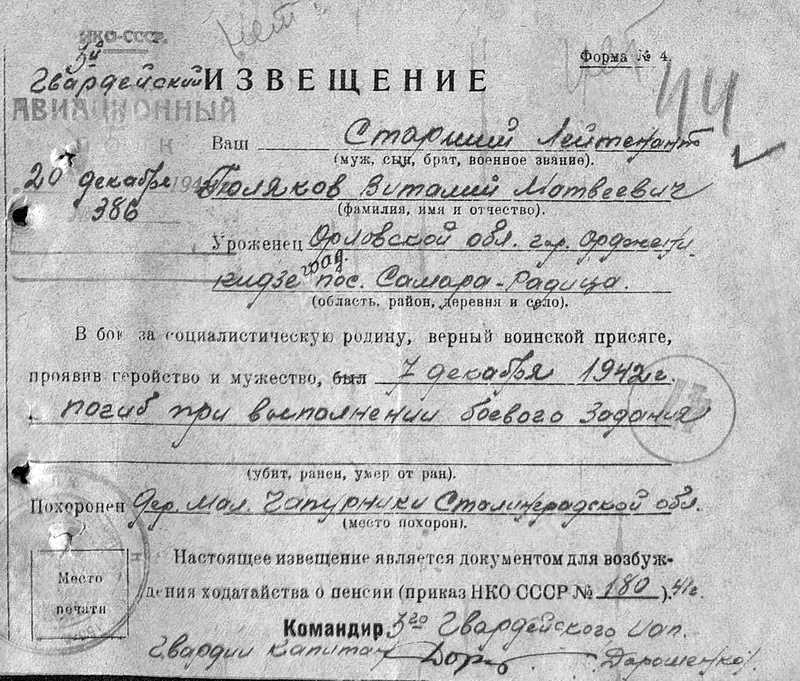 НКО-СССР.
Форма № 4.
44
5й
Гвардейский
ИЗВЕЩЕНИЕ
АВИАЦИОННЫЙ
ПОЛК
Ваш Старший Лейтенант
(муж, сын, брат, военное звание).
20 декабря 194
Поляков Виталий Матвеевич
386
(фамилия, имя и отчество).
Уроженец Орловской обл. гор. Орджони-
кидзеград. пос. Самара-Радица.
(область, район, деревня и село).
В бою за социалистическую родину, верный воинской присяге,
проявив геройство и мужество, был 7 декабря 1942 г.
погиб при выполнении боевого задания
(убит, ранен, умер от ран).
Похоронен дер. Мал. Чапурники Сталинградской обл.
(место похорон).
Настоящее извещение является документом для возбуж-
дения ходатайства о пенсии (приказ НКО СССР № 180). 41г.
Место
печати
Командир 5го Гвардейского иап.
Гвардии капитан Дорошенко